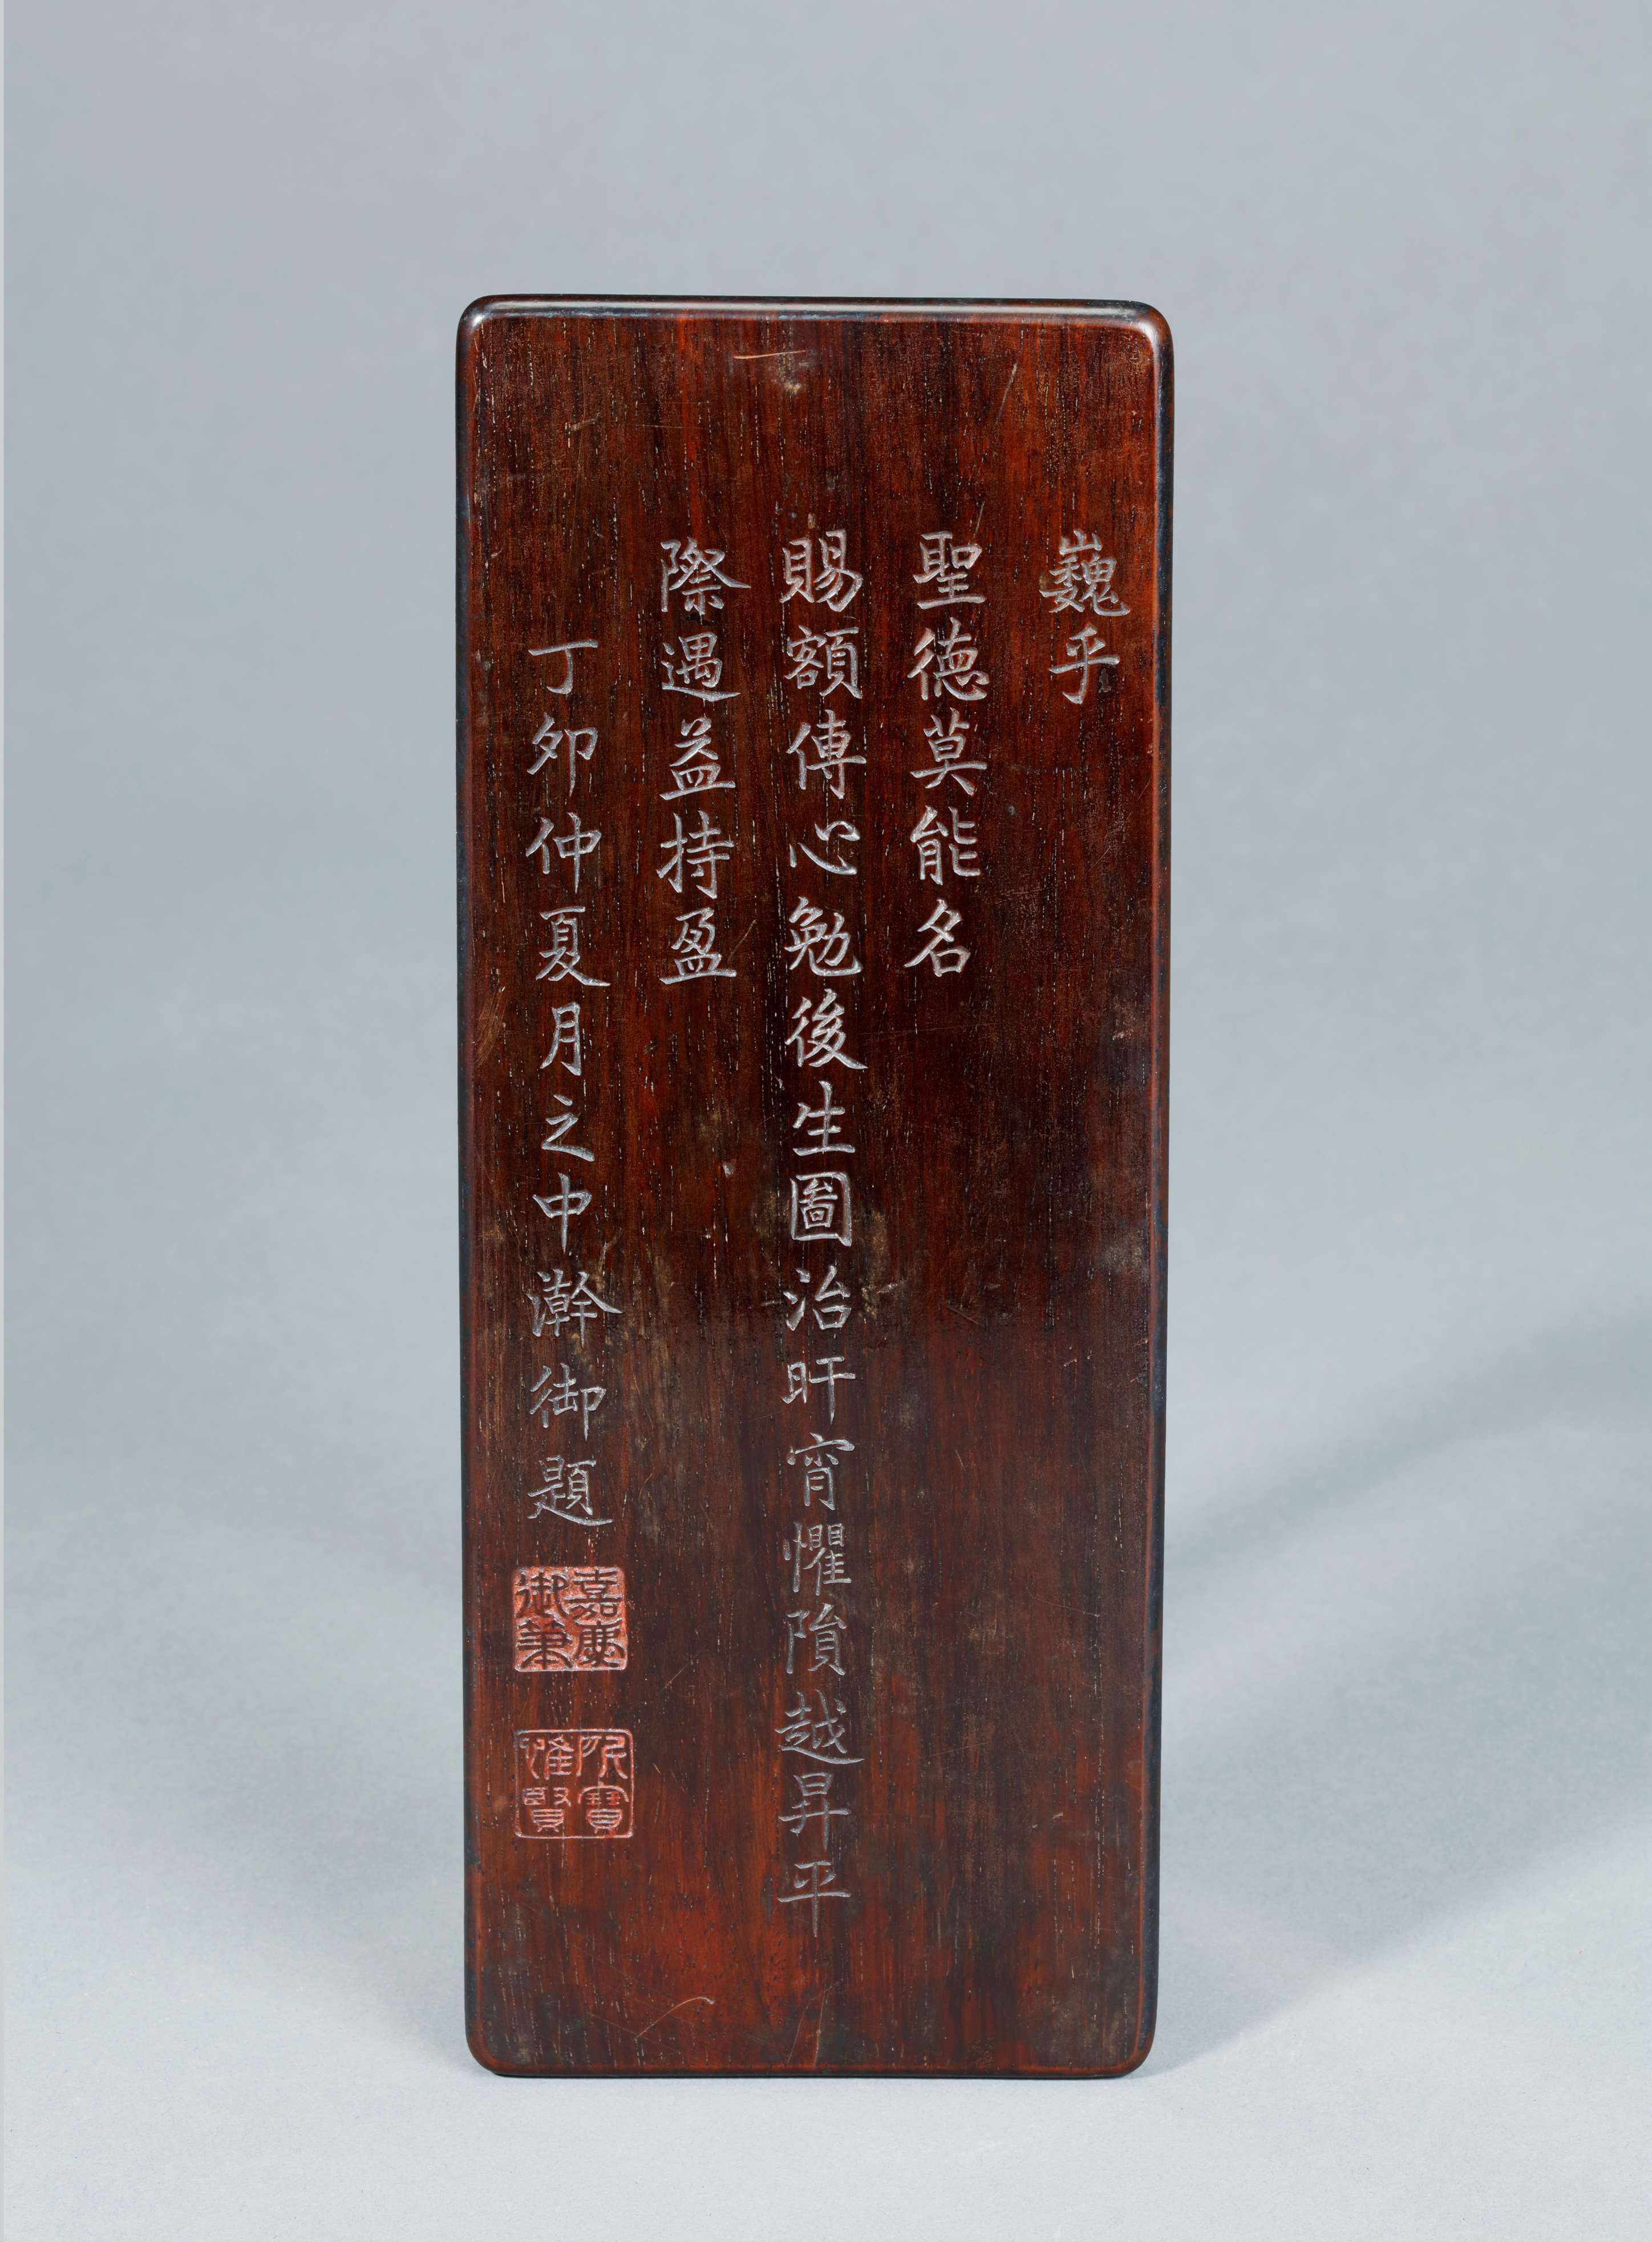 巍乎
聖德莫能名
賜額傳心勉後生圖治旰宵懼隕越昇平
際遇益持盈
丁卯仲夏月之中澣御題
嘉慶御筆
所寶惟賢